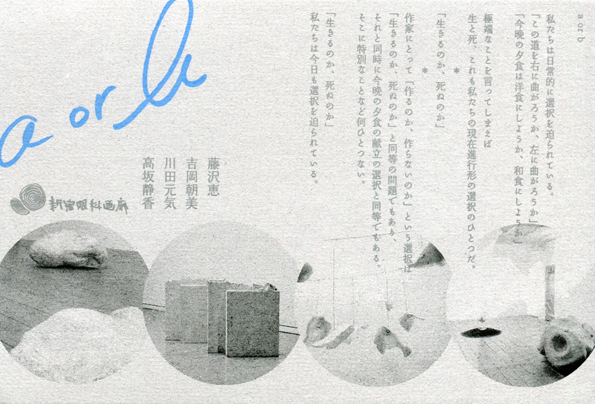 a or b
私たちは日常的に選択を迫られている。
「この道を右に曲がろうか、左に曲がろうか」
「今晩の夕食は洋食にしようか、和食にしようか」
極端なことを言ってしまえば
生と死、これも私たちの現在進行形の選択のひとつだ。
＊
「生きるのか、死ぬのか」
＊
作家にとって「作るのか、作らないのか」という選択は
「生きるのか、死ぬのか」と同等の問題でもあり、
それと同時に今晩の夕食の献立の選択と同等でもある。
そこに特別なことなど何ひとつない。
「生きるのか、死ぬのか」
私たちは今日も選択を迫られている。
a or b
藤沢恵
吉岡朝美
川田元気
高坂静香
新宿眼科画廊